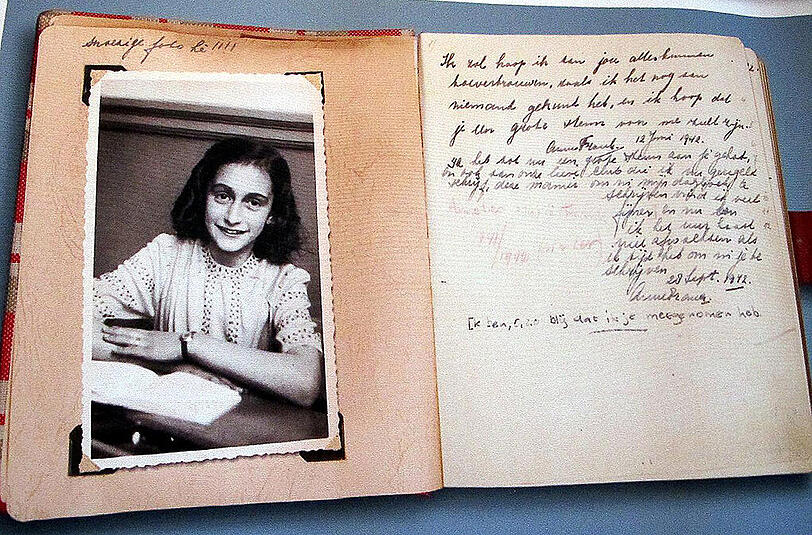 snoezige foto hè !!!!
Ik zal hoop ik aan jou alles kunnen
toevertrouwen, zoals ik het nog aan
niemand gekund heb, en ik hoop dat
je een grote steun voor me zult zijn.
Anne Frank. 12 Juni 1942.
Ik heb tot nu een grote steun aan je gehad,
en ook aan onze lieve club die ik nu geregeld
schrijf, deze manier om in mijn dagboek te
schrijven vind ik veel
fijner en nu kan
ik het uur haast
niet afwachten als
ik tijd heb om in je te
schrijven.
28 Sept. 1942.
Anne Frank.
Ik ben, o, zo blij dat ik je meegenomen heb